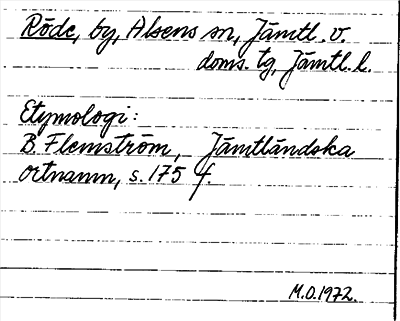 Röde, by, Alsens sn, Jämtl. v.
doms. tg, Jämtl. l.
Etymologi:
B. Flemström, Jämtländska
ortnamn, s. 175 f.
M.O. 1972.